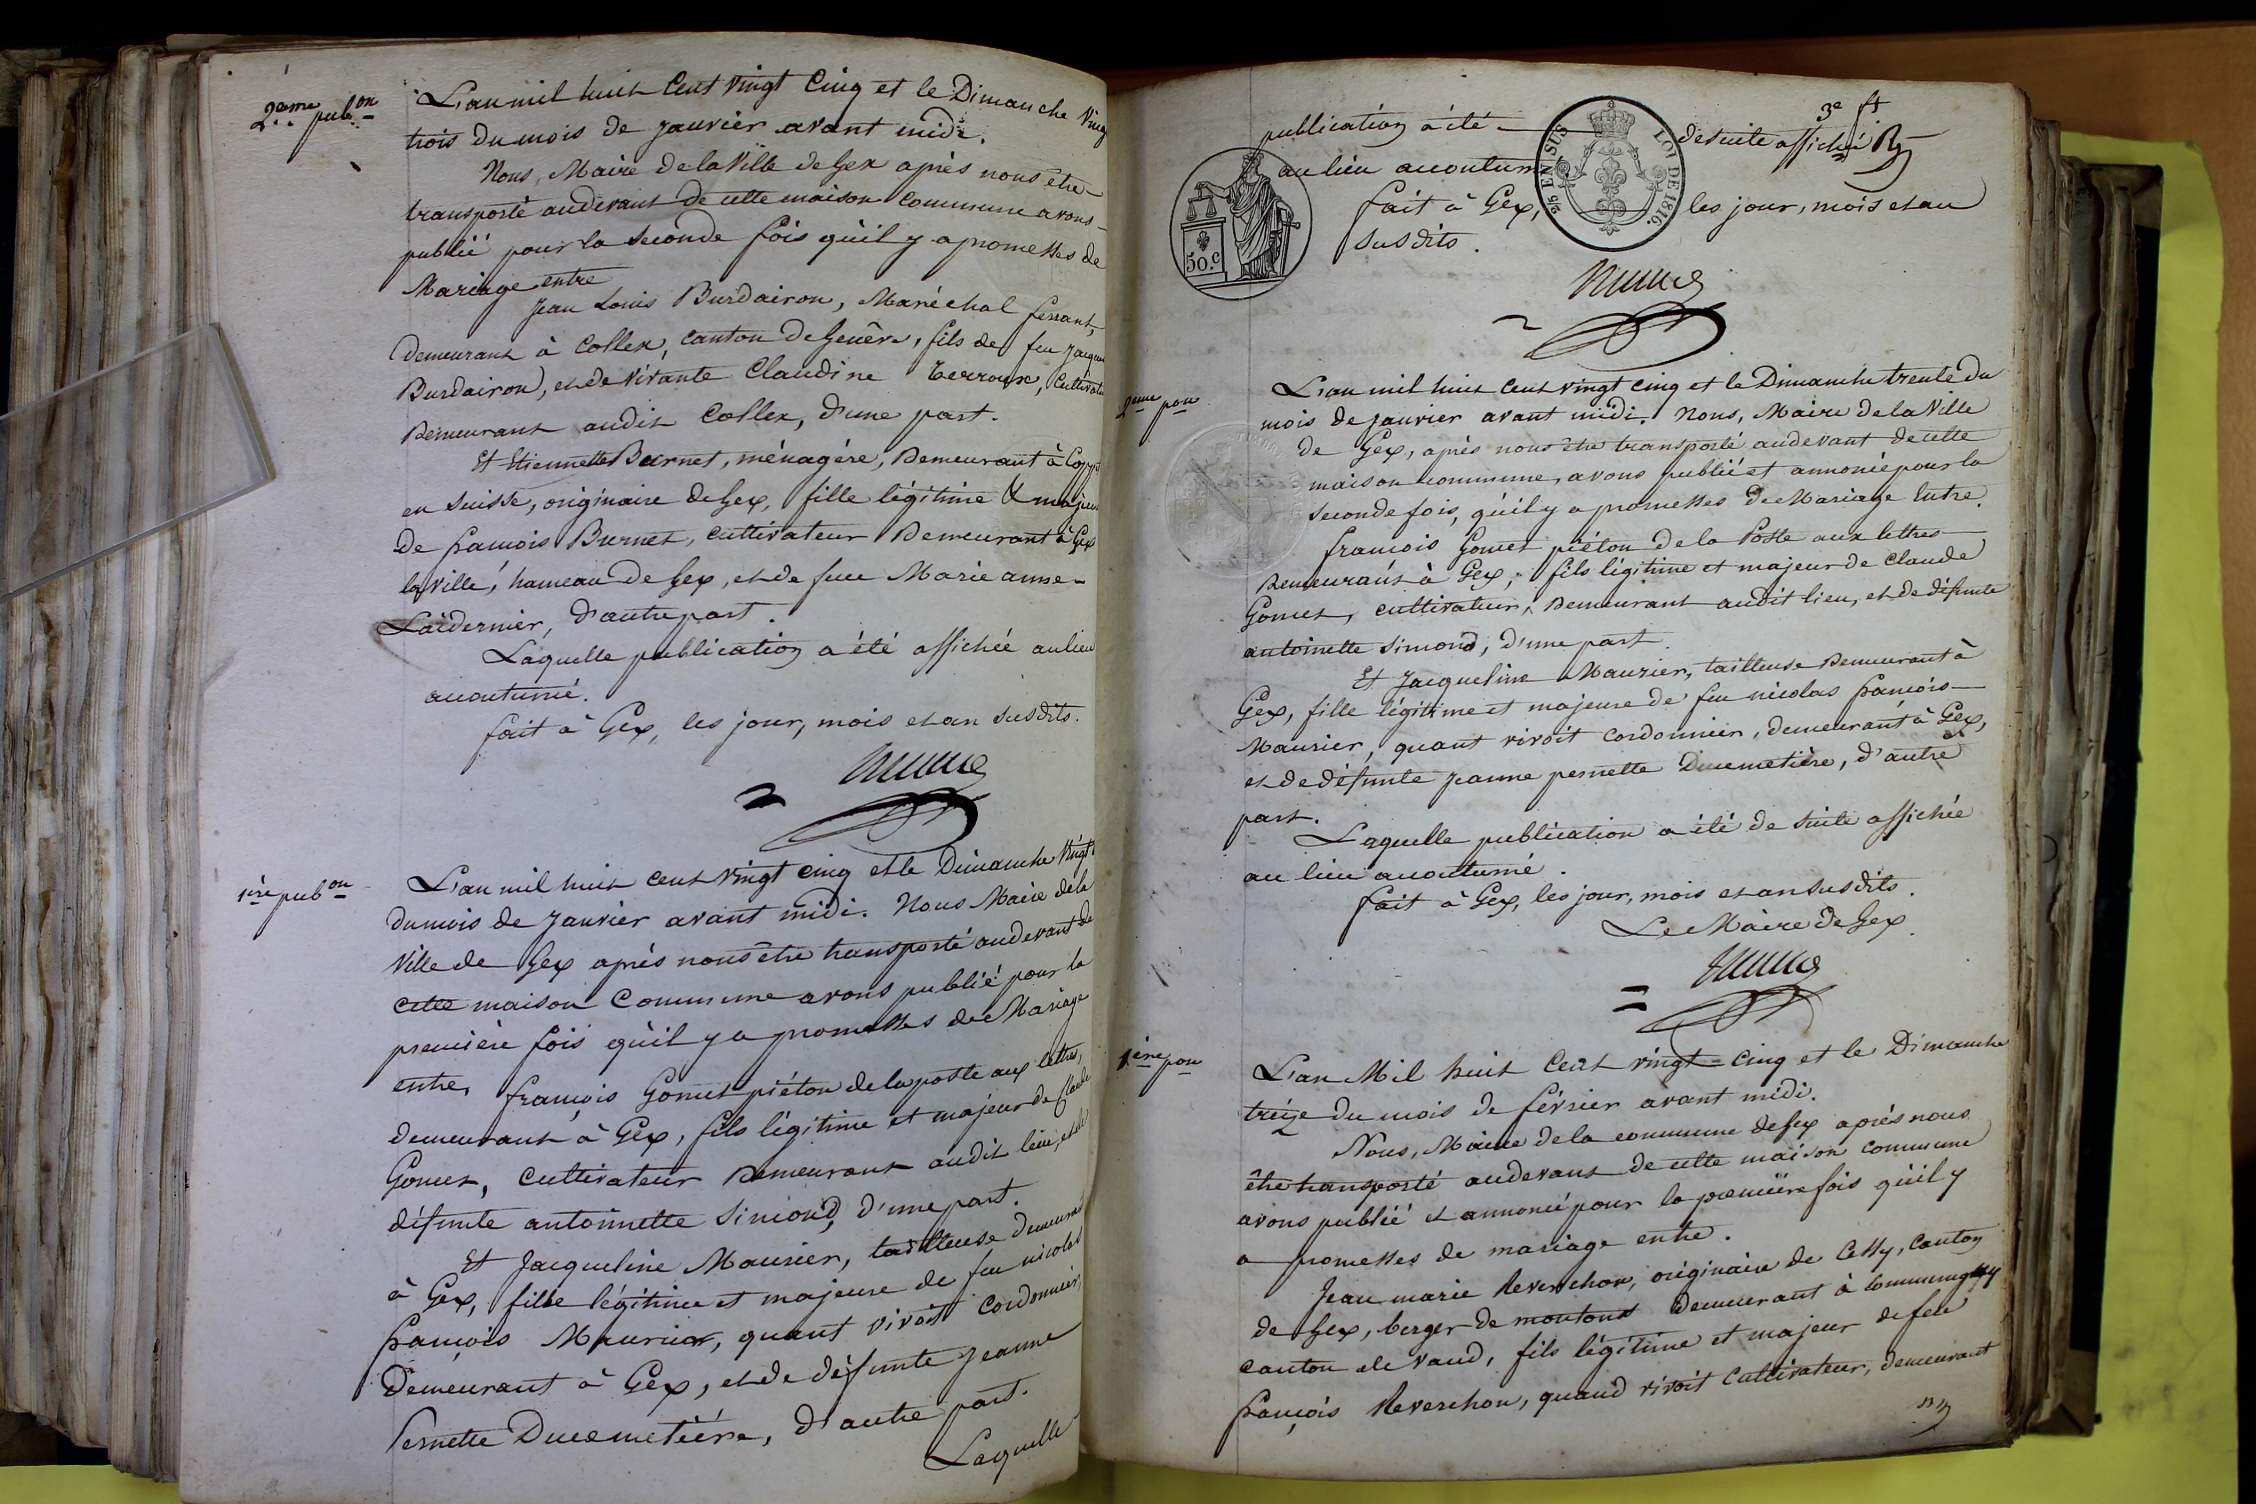 2eme pubon
L'an mil huit Cent Vingt Cinq et le Dimanche Vingt
trois du mois de Janvier avant midi.
Nous, Maire de la Ville de Gex après nous être
transporté au devant de cette maison Commune avons
publié pour la seconde fois qu'il y a promesses de
Mariage entre
Jean Louis Burdairon, Maréchal ferrant,
Demeurant à Collex, Canton de Genève, fils de feu Jacques
Burdairon, et de vivante Claudine Terroux, Cultivatr
Demeurant audit Collex, d'une part.
Et Etiennette Burnet, ménagère, Demeurant à Copp
en Suisse, originaire de Gex, fille légitime & majeure
De françois Burnet, cultivateur Demeurant à Gex
la ville, hameau de Gex, et de feue Marie anne
Laidernier, d'autre part.
Laquelle publication a été affichée au lieu
accoutumé.
fait à Gex, les jour, mois et an susdits.
1ère pubon
L'an mil huit cent Vingt cinq et le Dimanche Vingt
du mois de Janvier avant midi. Nous Maire de la
Ville de Gex après nous être transporté au devant de
cette maison Commune avons publié pour la
première fois qu'il y a promesses de Mariage
entre, françois Gomet piéton de la poste aux lettres,
demeurant à Gex, fils légitime et majeur de Claude
Gomet, Cultivateur Demeurant audit lieu, et de
défunte antoinette Simond, d'une part.
Et Jacqueline Maurier, tailleuse demeurant
à Gex, fille légitime et majeure de feu nicolas
françois Maurier, quant vivoit Cordonnier,
Demeurant à Gex, et de défunte Jeanne
Pernette Ducemetière, d'autre part.
Laquelle
publication a été de suite affichée
3e ft
au lieu accoutumé
fait à Gex, les jour, mois et an
susdits.
50.c
2/5 EN SUS LOI DE 1816.
2eme pon
L'an mil huit Cent vingt cinq et le Dimanche trente du
mois de Janvier avant midi. Nous, Maire de la Ville
de Gex, après nous être transporté au devant de cette
maison commune, avons publié et annoncé pour la
seconde fois, qu'il y a promesses de Mariage Entre.
françois Gomet piéton de la Poste aux lettres
Demeurant à Gex, fils légitime et majeur de Claude
Gomet, cultivateur, Demeurant audit lieu, et de défunte
antoinette Simond, d'une part.
Et Jacqueline Maurier, tailleuse Demeurant à
Gex, fille légitime et majeure de feu nicolas françois
Maurier, quant vivoit Cordonnier, demeurant à Gex,
et de défunte Jeanne pernette Ducemetière, d'autre
part.
Laquelle publication a été de suite affichée
au lieu accoutumé.
fait à Gex, les jour, mois et an susdits.
Le Maire de Gex.
1ère pon
L'an Mil huit Cent vingt-cinq et le Dimanche
treize du mois de février avant midi.
Nous, Maire de la commune de Gex après nous
être transporté au devant de cette maison commune
avons publié et annoncé pour la première fois qu'il y
a promesses de mariage entre.
Jean marie Reverchon, originaire de Cessy, Canton
de Gex, berger de moutons Demeurant à Commugny
canton de Vaud, fils légitime et majeur de feu
françois Reverchon, quand vivoit Cultivateur, demeurant